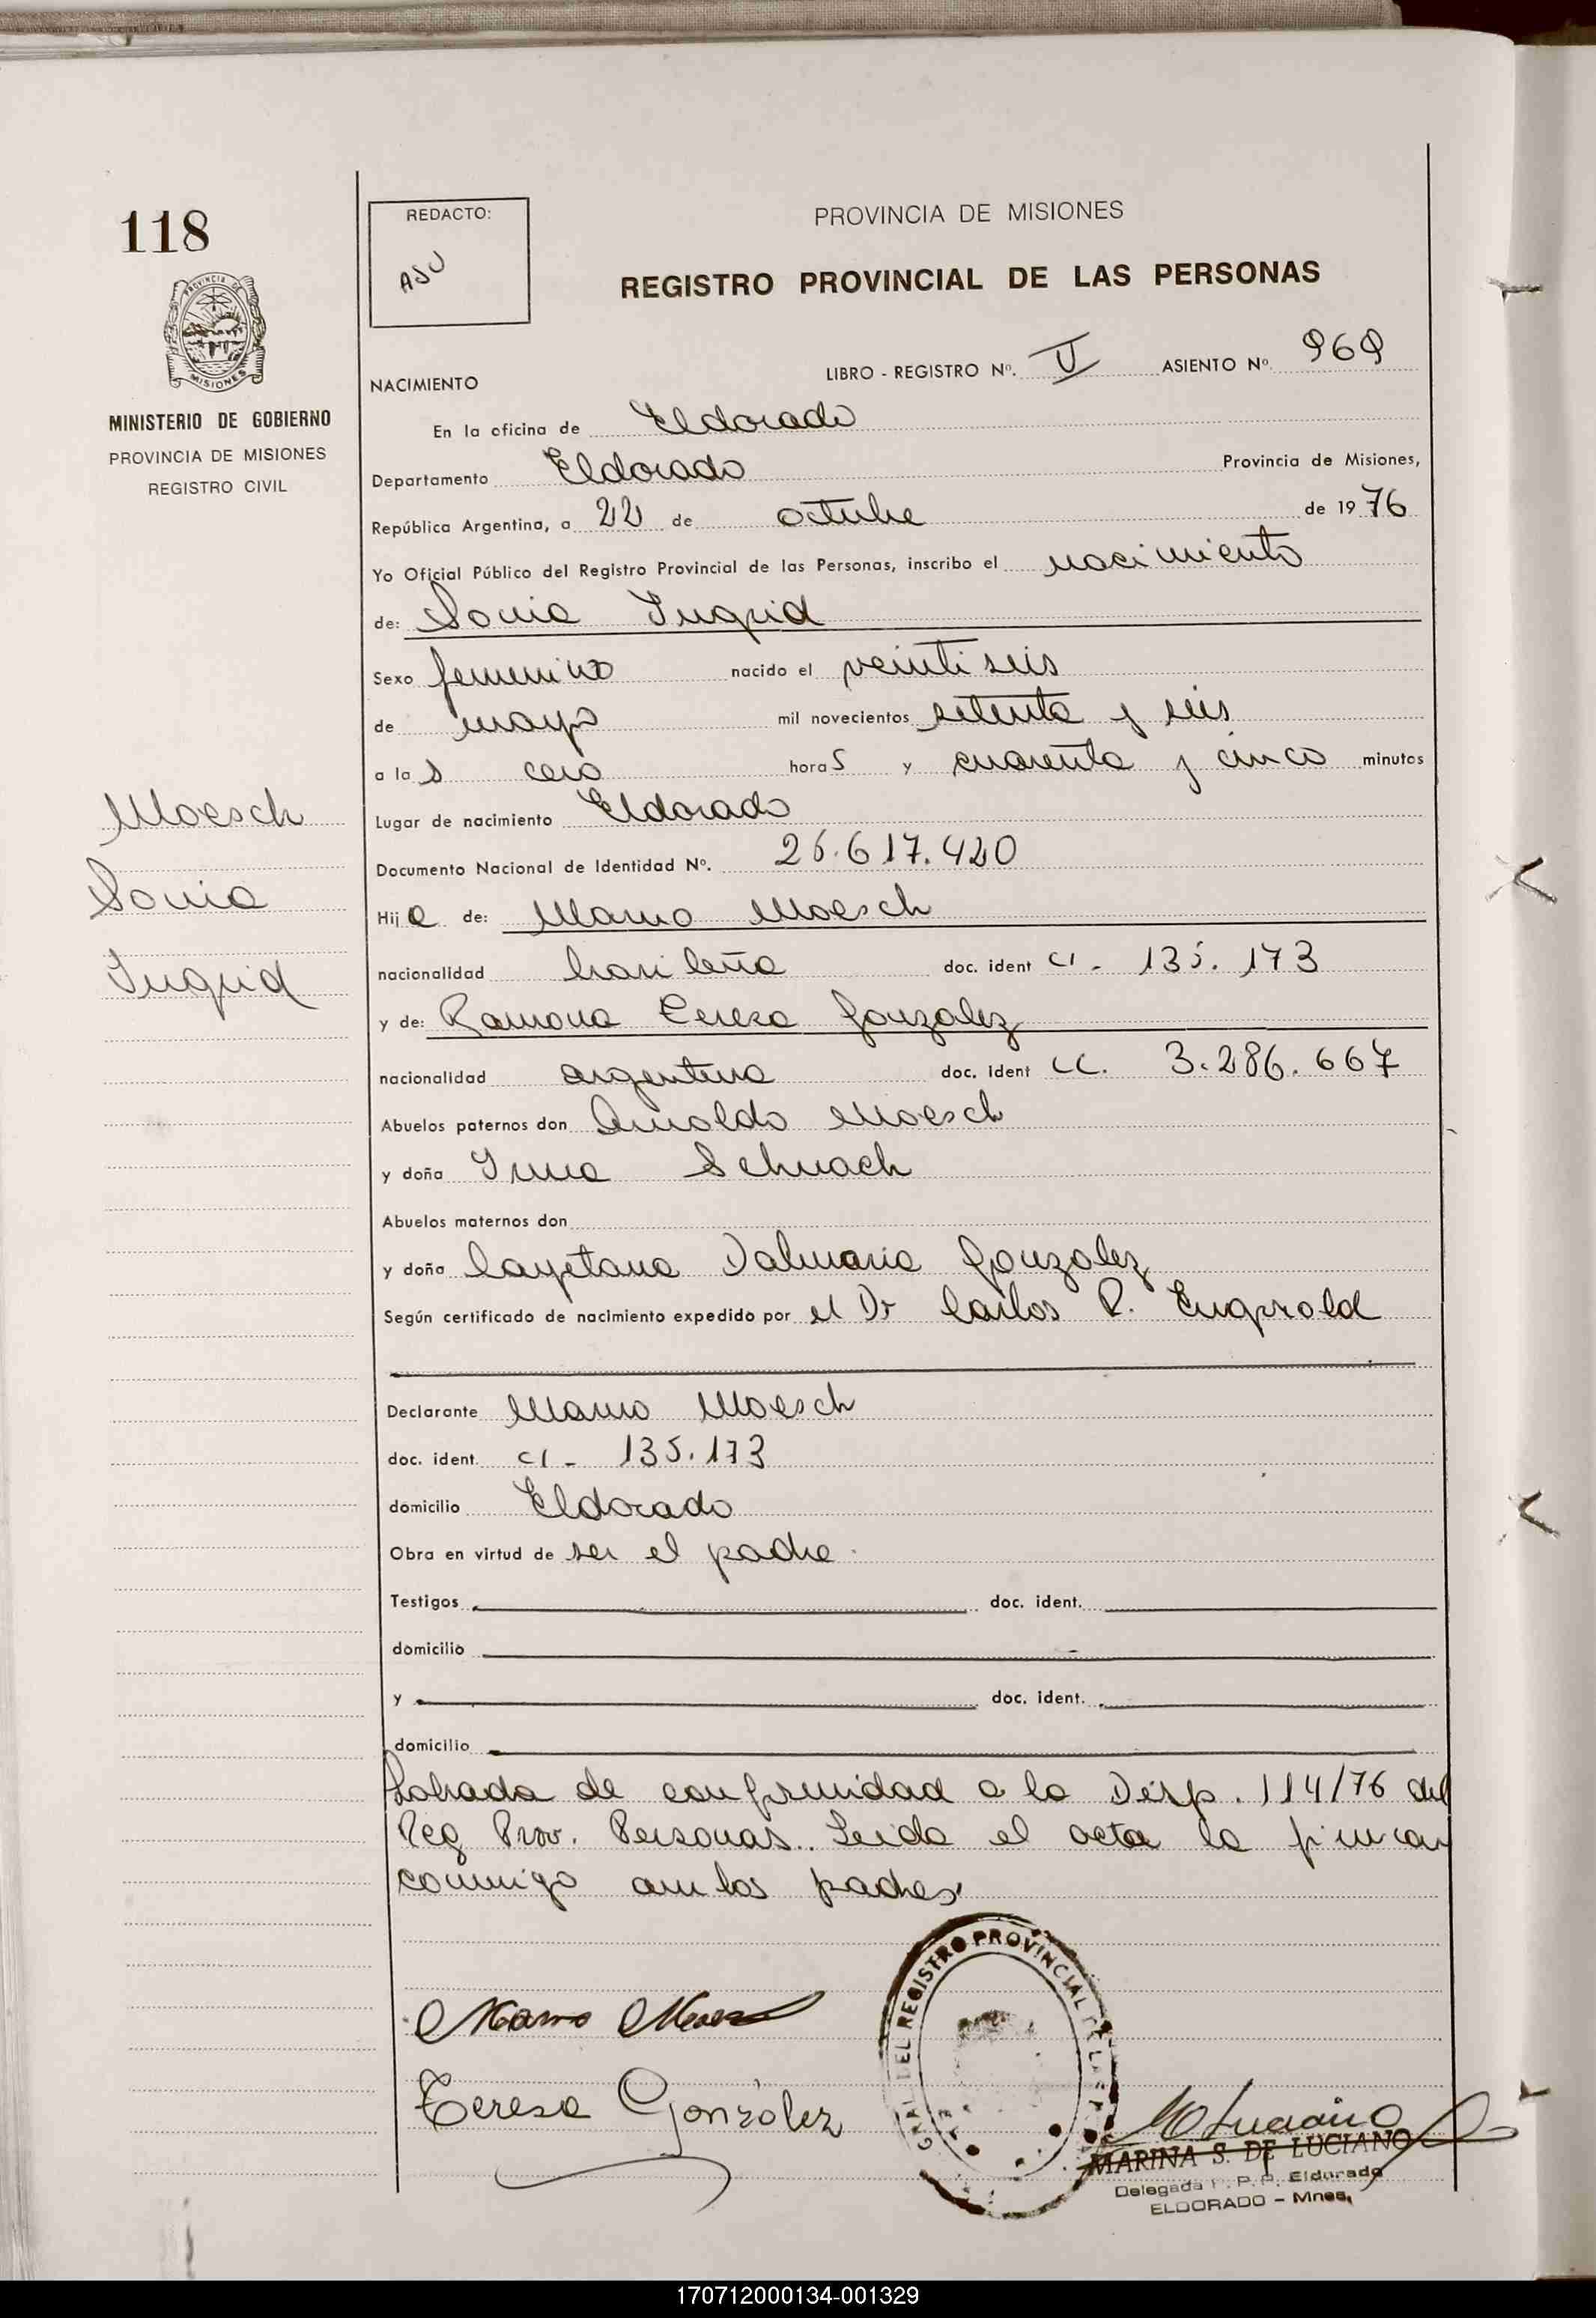 118
REDACTO:
ASU
PROVINCIA DE MISIONES
REGISTRO PROVINCIAL DE LAS PERSONAS
PROVINCIA DE
MISIONES
MINISTERIO DE GOBIERNO
PROVINCIA DE MISIONES
REGISTRO CIVIL
LIBRO - REGISTRO Nº. V ASIENTO Nº. 969
NACIMIENTO
En la oficina de Eldorado
Departamento Eldorado Provincia de Misiones,
República Argentina, a 22 de octubre de 1976
Yo Oficial Público del Registro Provincial de las Personas, inscribo el nacimiento
de: Sonia Ingrid
Sexo femenino nacido el veintiseis
de mayo mil novecientos setenta y seis
a las cero horas y cuarenta y cinco minutos
Lugar de nacimiento Eldorado
Documento Nacional de Identidad Nº. 25.617.420
Hija de: Mario Moesch
nacionalidad brasileña doc. ident CI - 135.173
y de: Ramona Teresa Gonzalez
nacionalidad argentina doc. ident LC. 3.286.667
Abuelos paternos don Arnoldo Moesch
y doña Irma
Abuelos maternos don
y doña Cayetana Dalmacia Gonzalez
Según certificado de nacimiento expedido por el Dr Carlos R.
Declarante Mario Moesch
doc. ident. CI - 135.173
domicilio Eldorado
Obra en virtud de ser el padre.
Testigos doc. ident.
domicilio
y doc. ident.
domicilio
Labrada de conformidad a la Disp. 114/76 del
Reg Prov. Personas. Leida el acta la firman
conmigo ambos padres
Moesch
Sonia
Ingrid
Mario
Teresa González
GRAL DEL REGISTRO PROVINCIAL DE LAS
MARINA S. DE LUCIANO
Delegada R. P. P. Eldorado
ELDORADO - Mnes.
170712000134-001329